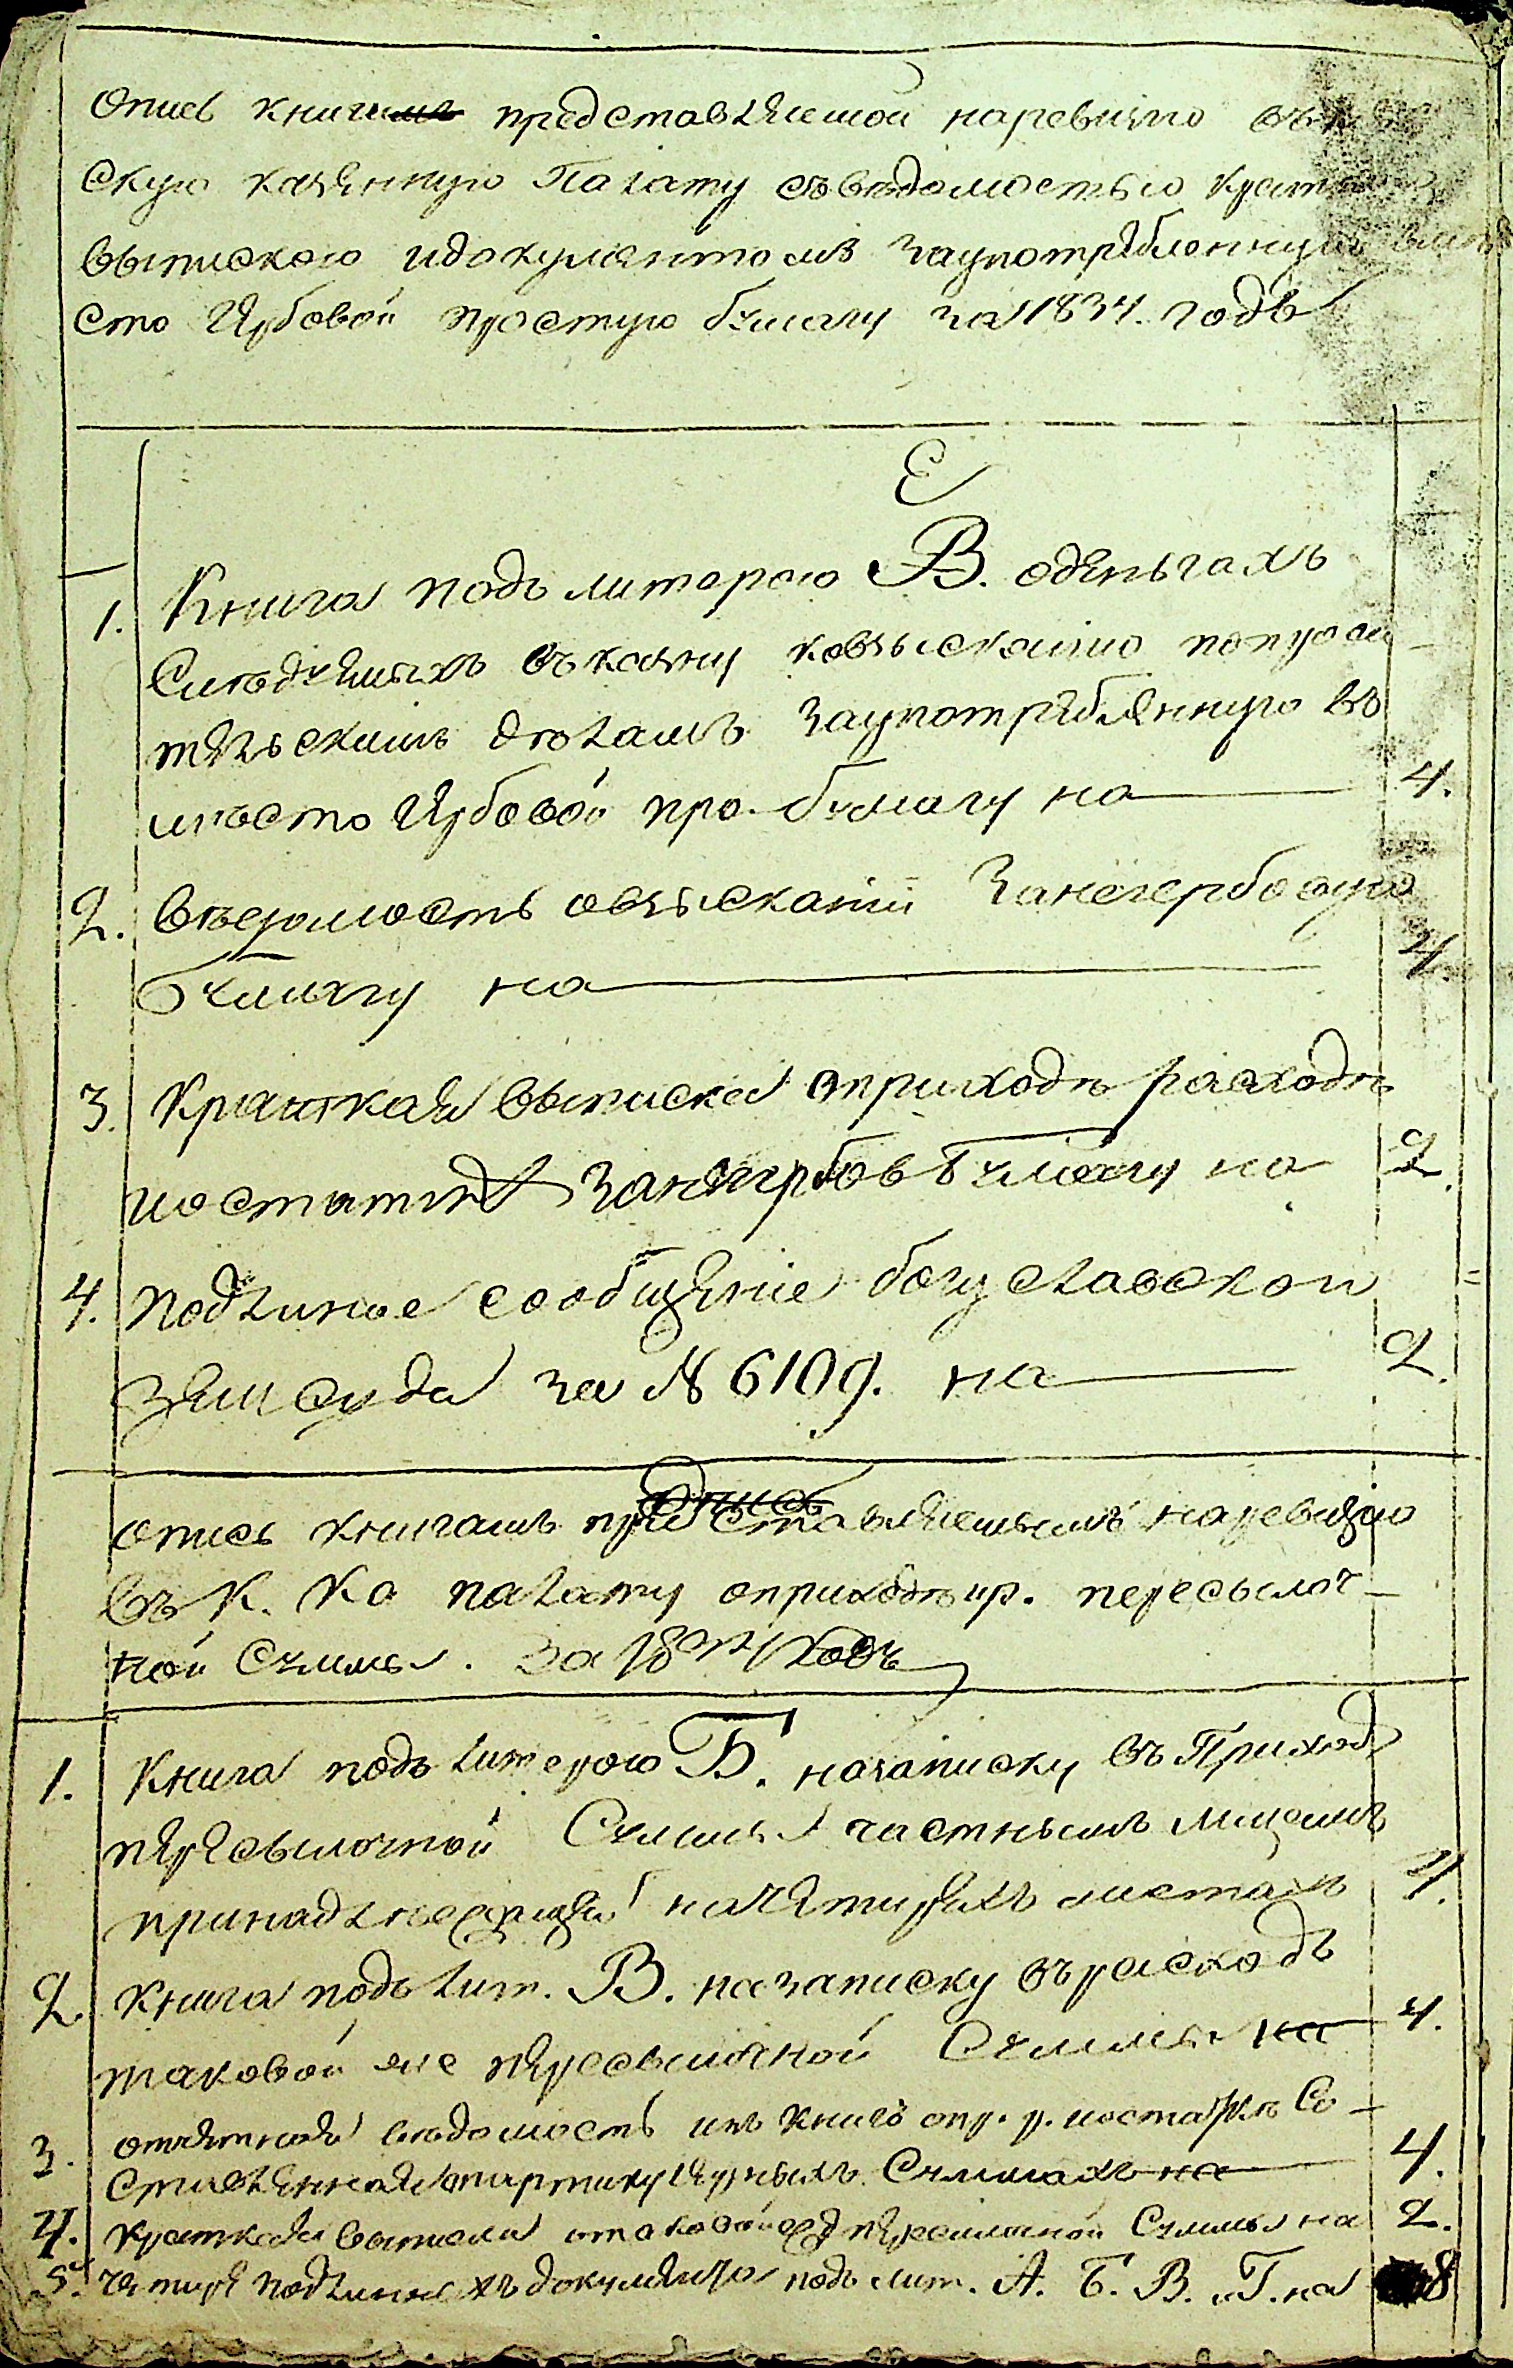 Опись книги представляемой наревизию въ
скую казенную Палату съведомостью крат
выпискою идокументомъ заупотребленную вмѣ
сто гербовой простую бумагу за 1834. годъ
1. Книга подъ литерою В. оденьгахъ
слѣдуемыхъ въказну ковзысканию попроси
тельскимъ дѣламъ заупотребленную въ
мѣсто гербовой про. бумагу на 4.
2. Вѣдомость овзыскании занегербовую
бумагу на 4
3. Краткая выписка оприходѣ расходѣ
иостаткѣ занегербов бумагу на 2.
4. подлиное сообщение богуславскои
зем суда за № 6109. на 2.
опись книгамъ представляемымъ наревизию
въ К. Ка палату оприходѣ ир. пересылоч-
ной суммы. За 1834 годъ
1. Книга подъ литерою Б. назаписку въ Приход
пересылочной Суммы частнымъ лицамъ
принадлежащей начетырехъ листахъ 4.
2 Книга подъ лит. В. назаписку врасходъ
таковой же пересылочной Суммы на 4.
3. отчетная вѣдомость изъ книгъ опр. р. иостаткѣ со-
ставленная опартикулярныхъ Суммахъ на 4.
4. краткая выписка отаковой пересылочной Суммы на 2.
5. четыре подлинныхъ документа подъ лит. А. Б. В. и Г. на 8